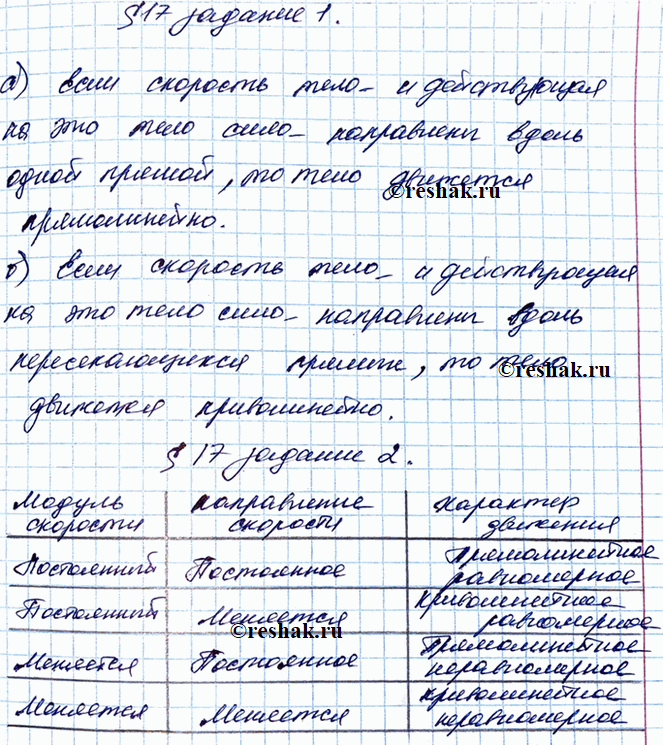 §17 задание 1.
а) Если скорость тела и действующая
на это тело сила направлены вдоль
одной прямой, то тело движется
©reshak.ru
прямолинейно.
б) Если скорость тела и действующая
на это тело сила направлены вдоль
пересекающихся прямых, то тело
©reshak.ru
движется криволинейно.
§ 17 задание 2.
Модуль скорости направление скорости характер движения
Постоянный Постоянное Прямолинейное равномерное
Постоянный Меняется криволинейное равномерное
©reshak.ru
Меняется Постоянное Прямолинейное неравномерное
Меняется Меняется криволинейное неравномерное